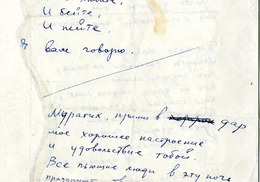 И бейте,
И пейте,
вам говорю.
Муратик, прими в дар
мое хорошее настроение
и удовольствие тобой.
Все пьющие люди в эту ночь